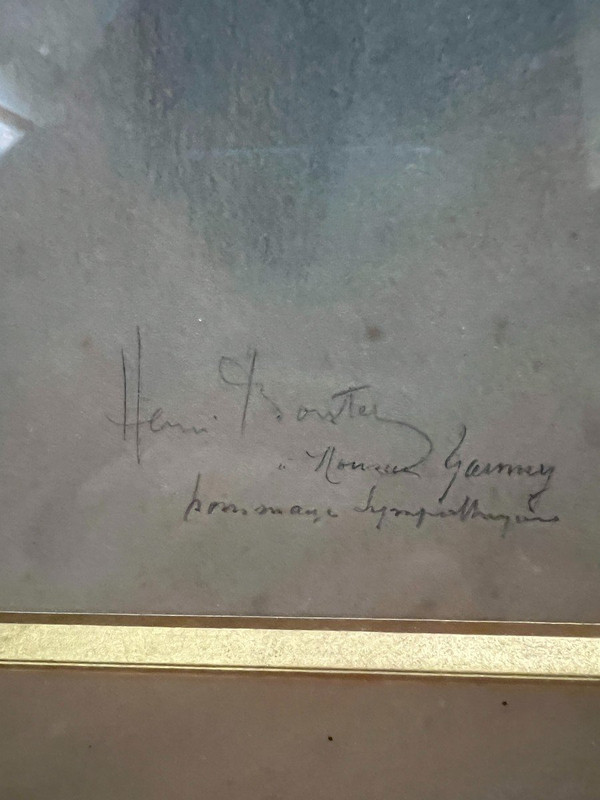 Henri Boutet
à Monsieur
hommage sympathique